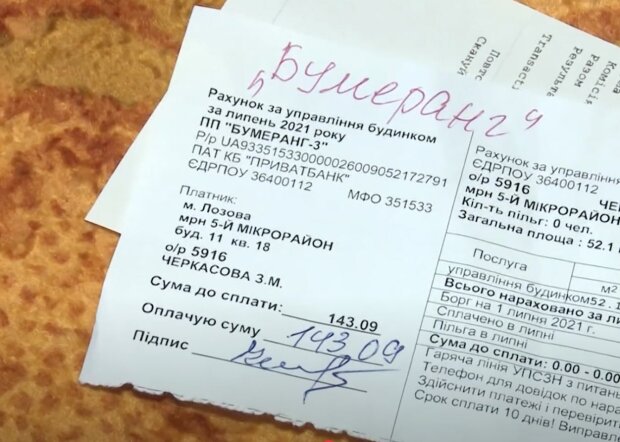 "Бумеранг"
Рахунок за управління будинком
за липень 2021 року
ПП "БУМЕРАНГ-3"
Р/р UA933515330000026009052172791
ПАТ КБ "ПРИВАТБАНК"
ЄДРПОУ 36400112 МФО 351533
Платник:
м. Лозова
мрн 5-Й МІКРОРАЙОН
буд. 11 кв. 18
о/р 5916
ЧЕРКАСОВА З.М.
Сума до сплати: 143.09
Оплачую суму 143,09
Підпис
Рахунок за управління
ЄДРПОУ 36400112
о/р 5916
мрн 5-Й МІКРОРАЙОН
Кіл-ть пільг: 0 чел.
Загальна площа : 52.1
Послуга
м2
управління будинком 52.
Всього нараховано за
Борг на 1 липня 2021 г.
Сплачено в липні
Пільга в липні
Сума до сплати: 0.00 - 0.00
Гаряча лінія УПСЗН з питань
Телефон для довідок по
Здійснити платежі і
Срок сплати 10 дней!
Transacti
Скануй
Разом
Комісія